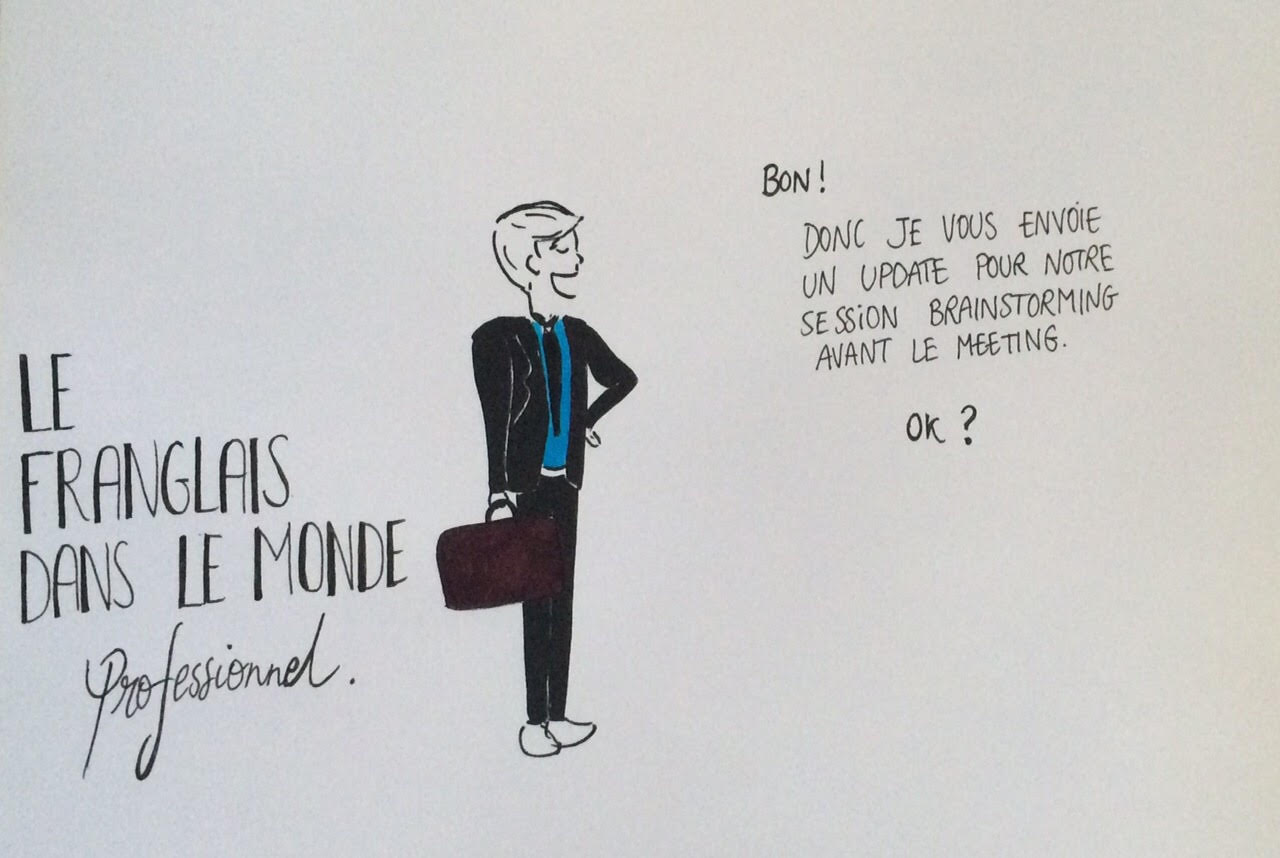 LE
FRANGLAIS
DANS LE MONDE
Professionnel.
BON !
DONC JE VOUS ENVOIE
UN UPDATE POUR NOTRE
SESSION BRAINSTORMING
AVANT LE MEETING.
OK ?